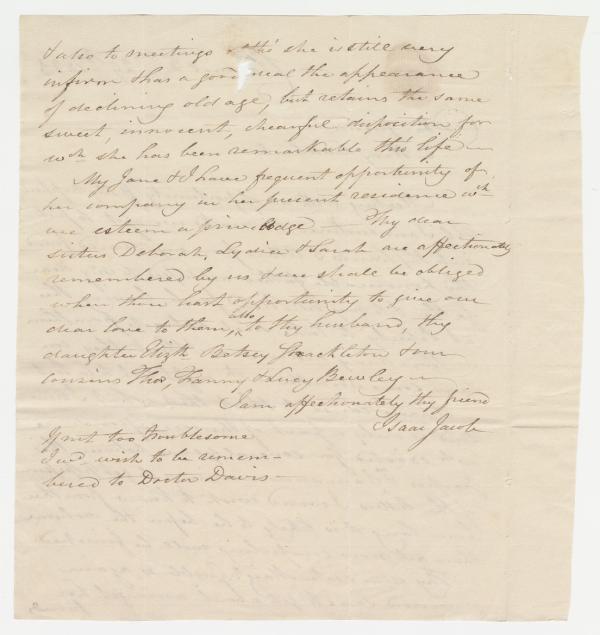 & also to meetings & tho' she is still very
infirm & has a good deal the appearance
of declining old age, but retains the same
sweet, innocent, chearful disposition for
wch she has been remarkable thro' life —
My Jane & I have frequent opportunity of
her company in her present residence wch
we esteem a priviledge — Thy dear
sisters Deborah, Lydia & Sarah are affectionately
remembered by us & we shall be obliged
when thou hast opportunity to give our
dear love to them, also to thy husband, thy
daughter Elizth Betsey Shackleton & our
cousins Thos, Fanny & Lucy Bewley —
I am affectionately thy friend
Isaac Jacob
If not too troublesome
I wd wish to be remem-
bered to Doctor Davis —